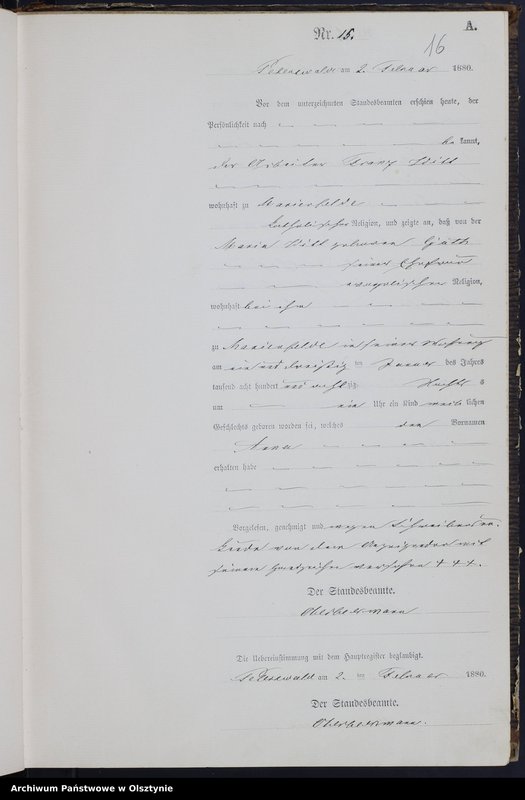 Nr. 16.
A.
16
Peterswalde am 2. Februar 1880.
Vor dem unterzeichneten Standesbeamten erschien heute, der
Persönlichkeit nach
be kannt,
der Arbeiter Franz Witt
wohnhaft zu Marienfelde
katholischer Religion, und zeigte an, daß von der
Maria Witt geborenen
seiner Ehefrau
evangelischer Religion,
wohnhaft bei ihm
zu Marienfelde in seiner Wohnung
am ein und dreißig ten Januar des Jahres
tausend acht hundert und achtzig Nachts
um ein Uhr ein Kind weib lichen
Geschlechts geboren worden sei, welches den Vornamen
Anna
erhalten habe
Vorgelesen, genehmigt und wegen Schreibensun-
kunde von dem Anzeigenden mit
seinem Handzeichen versehen + + +.
Der Standesbeamte.
Die Uebereinstimmung mit dem Hauptregister beglaubigt.
Peterswalde am 2. ten Februar 1880.
Der Standesbeamte.
Archiwum Państwowe w Olsztynie